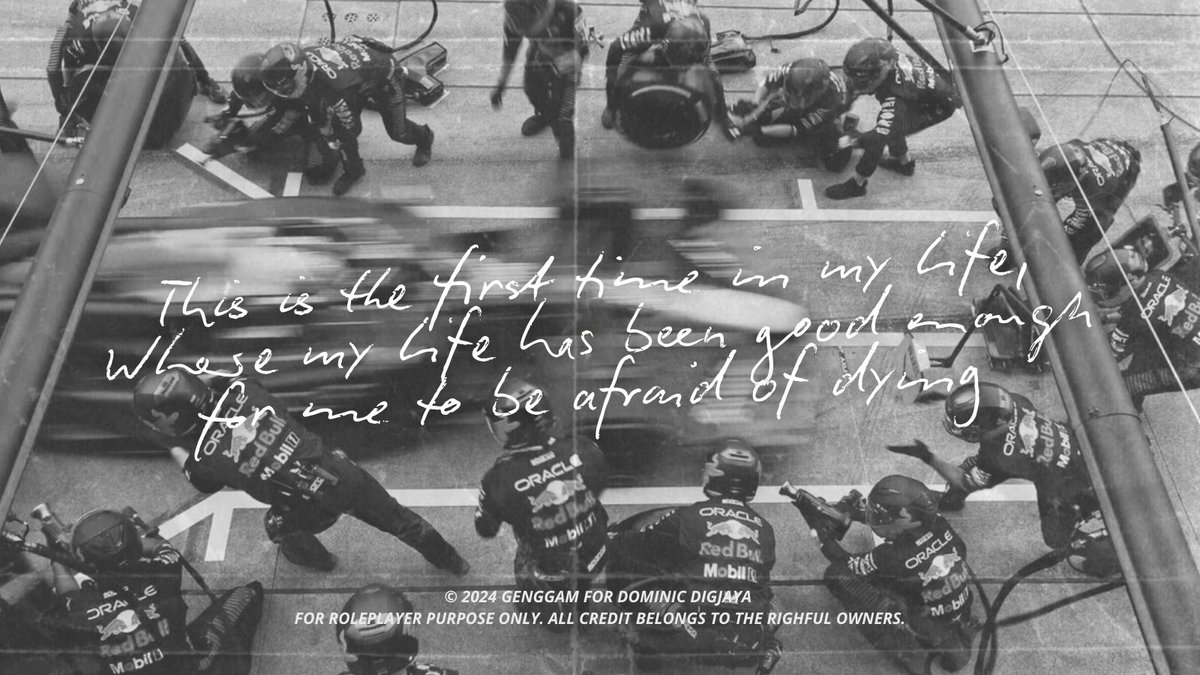 This is the first time in my life,
Where my life has been good enough
for me to be afraid of dying
ORACLE
Red Bull
Mobil 1
ORACLE
Red Bull
Mobil 1
ORACLE
Red Bull
Mobil 1
ORACLE
Red Bull
Mobil 1
ORACLE
Red Bull
Mobil 1
© 2024 GENGGAM FOR DOMINIC DIGJAYA
FOR ROLEPLAYER PURPOSE ONLY. ALL CREDIT BELONGS TO THE RIGHFUL OWNERS.